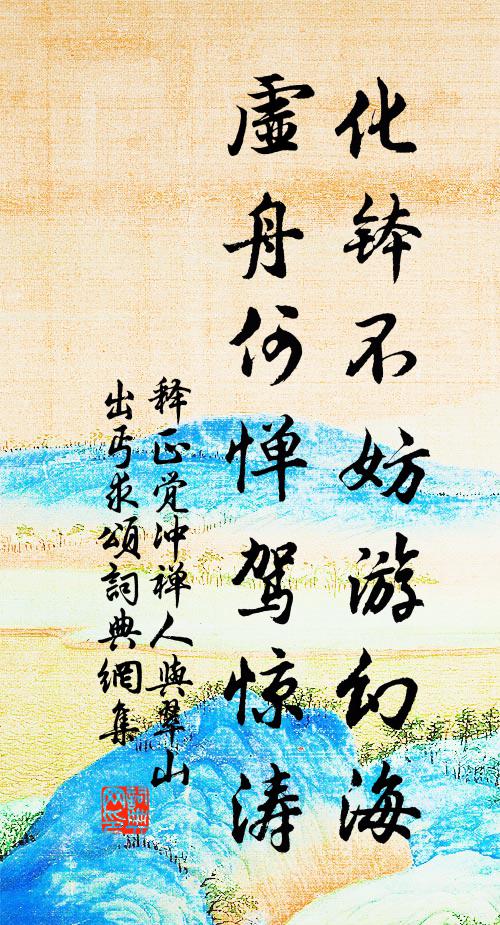 化钵不妨游幻海
虚舟何惮驾惊涛
释正觉冲禅人与翠山
出丐求頌詞典網集